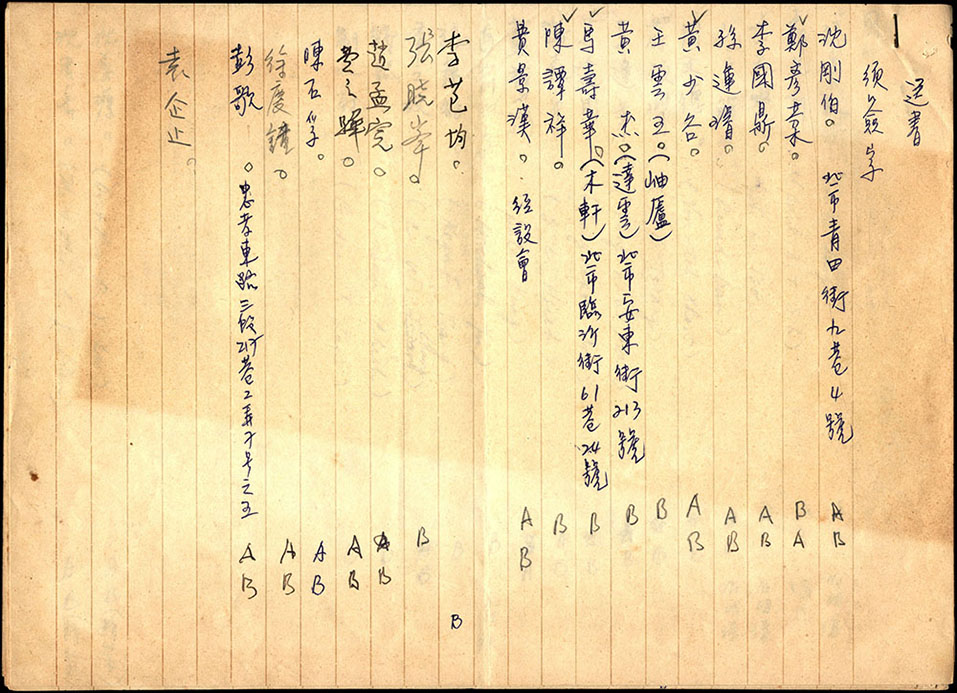 送書
須簽字
沈剛伯。 北市青田街九巷4號 A B
鄭彥棻。 B A
李國鼎。 A B
孫運璿。 A B
黃少谷。 A B
王雲五。(岫廬) B
黃杰。(達雲)北市安東街213號 B
馬壽華。(木軒)北市臨沂街61巷24號 B
陳譚祥。 B
費景漢。 經設會 A B
李芑均。 B
張曉峯。 B
趙孟完。 A B
費之驊。 A B
陳石孚。 A B
徐慶鐘。 A B
彭歌。忠孝東路三段217巷2弄 号之五 A B
袁企止。